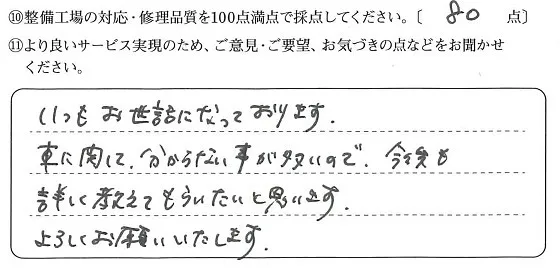 ⑩整備工場の対応・修理品質を100点満点で採点してください。〔 80 点〕
⑪より良いサービス実現のため、ご意見・ご要望、お気づきの点などをお聞かせ
ください。
いつもお世話になっております。
車に関して、分からない事が多いので、今後も
詳しく教えてもらいたいと思います。
よろしくお願いいたします。